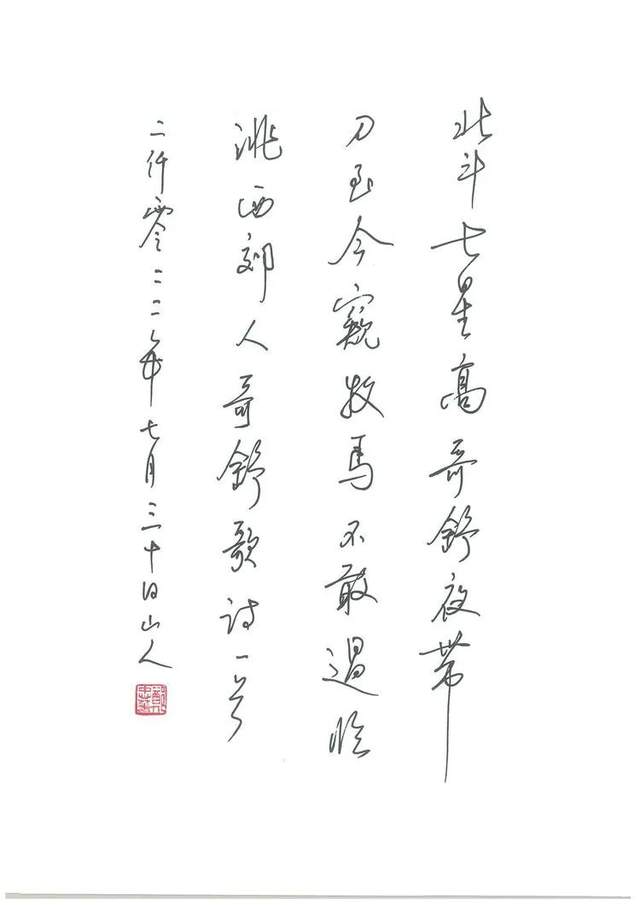 北斗七星高哥舒夜帶
刀至今窺牧馬不敢過臨
洮西郊人哥舒歌詩一首
二仟零二二年七月三十日山人